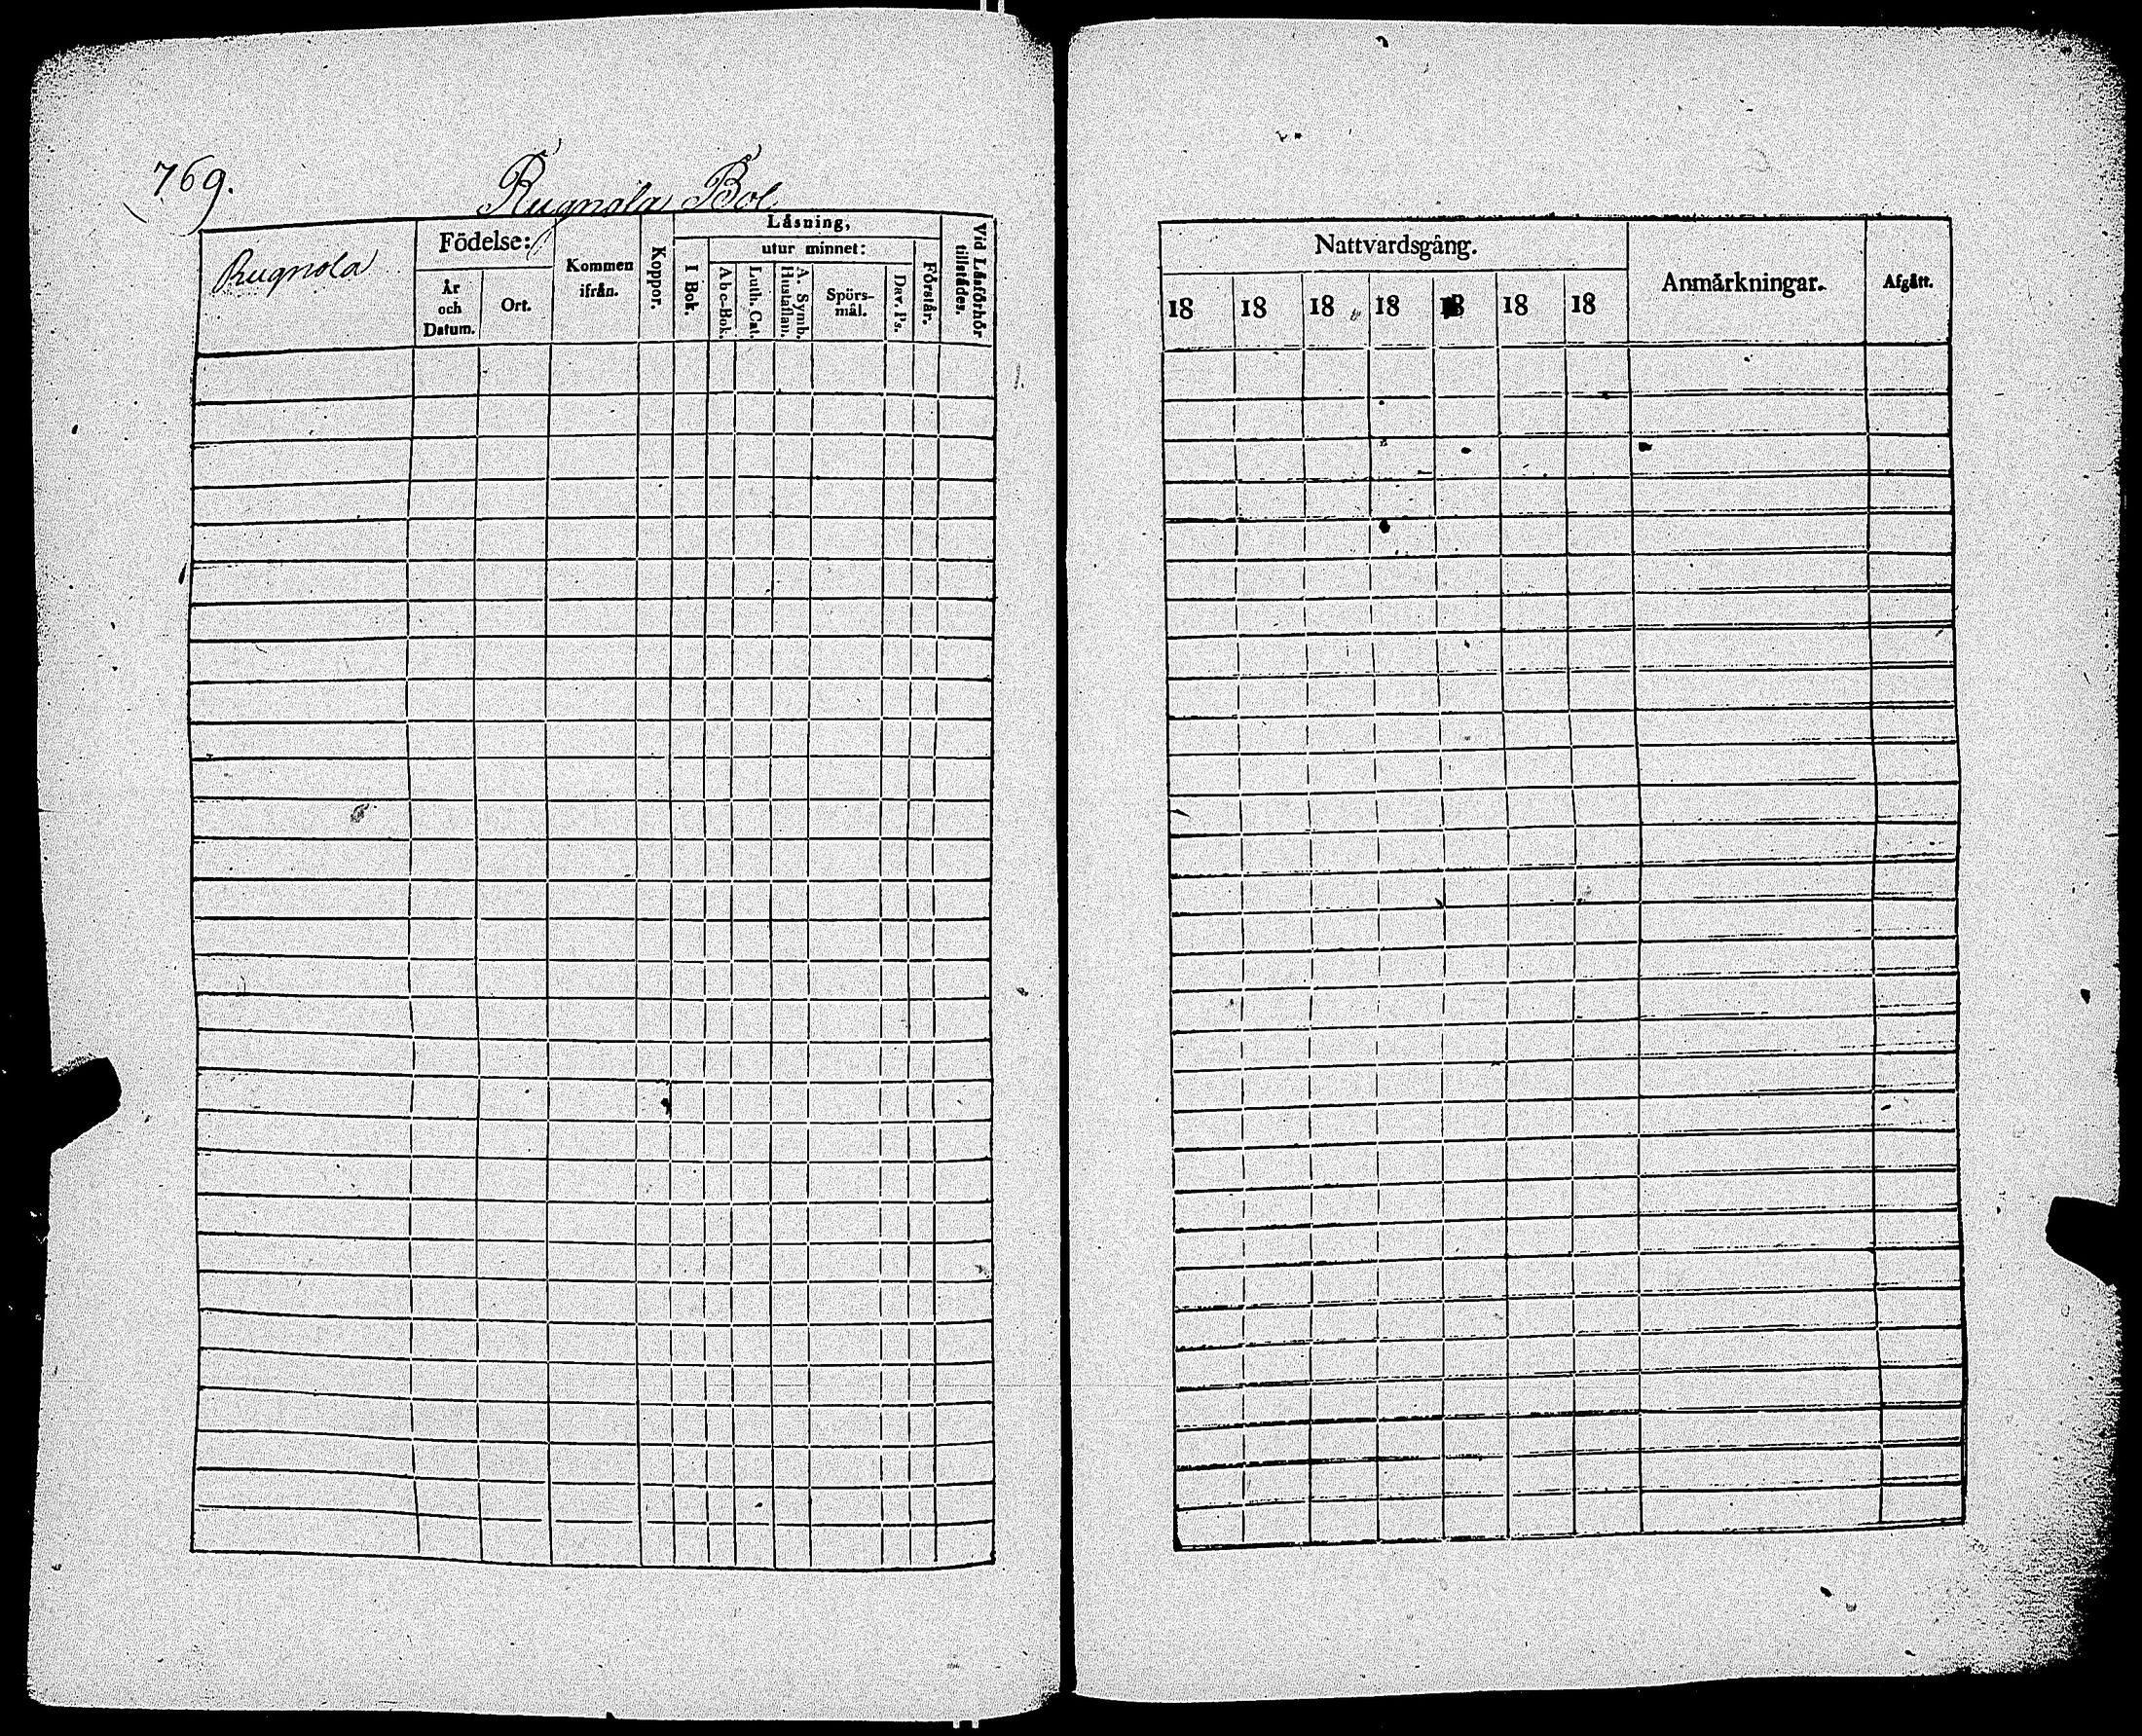 769.
Rugnola Bol
Rugnola
Födelse:
År och Datum.
Ort.
Kommen ifrån.
Koppor.
Läsning,
I Bok.
utur minnet:
A b c-Bok.
Luth. Cat.
A. Symb. Hustaflan.
Spörs-
mål.
Dav. Ps.
Förstår.
Vid Läsförhör tillstädes.
Nattvardsgång.
18 18 18 18 18 18 18
Anmärkningar.
Afgått.